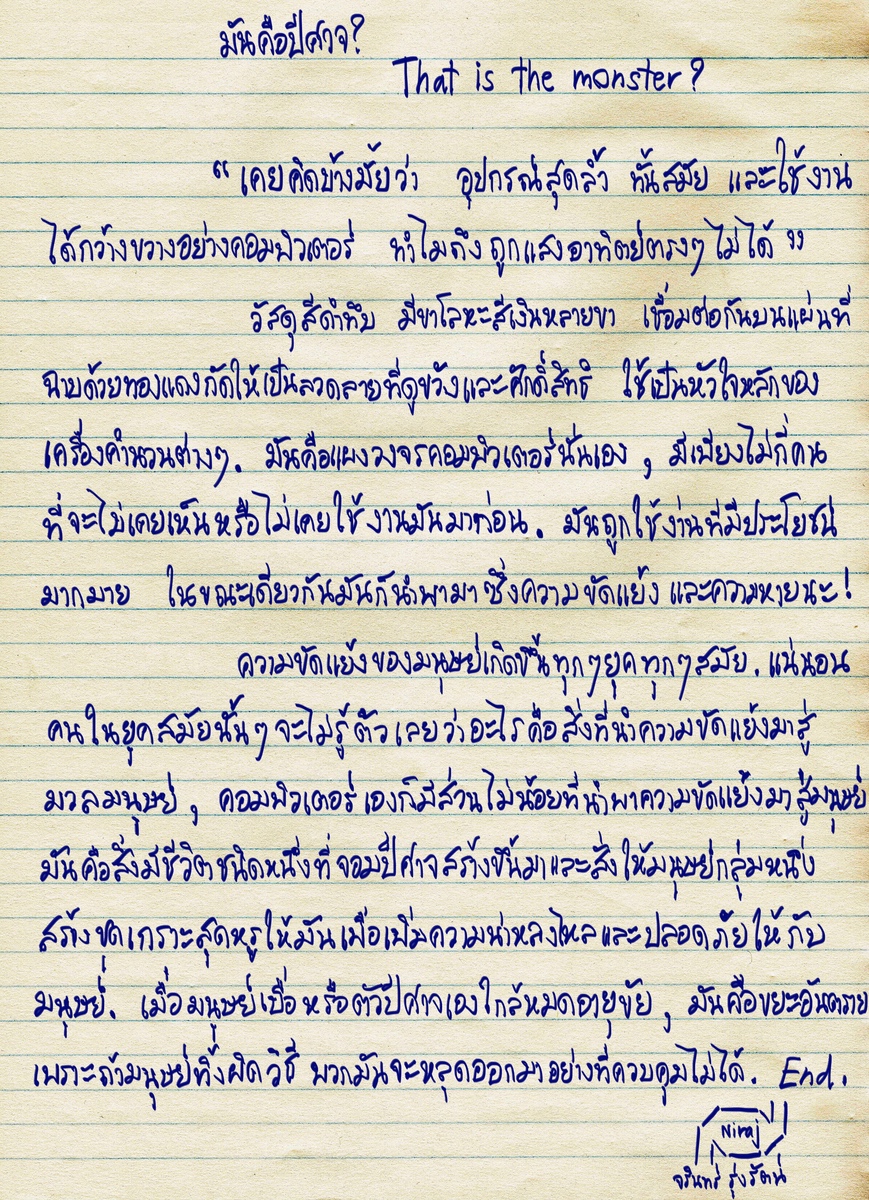 มันคือปีศาจ?
That is the monster?
“ เคยคิดบ้างมั้ยว่า อุปกรณ์สุดล้ำ ทันสมัย และใช้งาน
ได้กว้างขวางอย่างคอมพิวเตอร์ ทำไมถึงถูกแสงอาทิตย์ตรงๆไม่ได้ ”
วัสดุสีดำทึบ มีขาโลหะสีเงินหลายขา เชื่อมต่อกันบนแผ่นที่
ฉาบด้วยทองแดงกัดให้เป็นลวดลายที่ดูขวังและศักดิ์สิทธิ ใช้เป็นหัวใจหลักของ
เครื่องคำนวนต่างๆ. มันคือแผงวงจรคอมพิวเตอร์นั่นเอง, มีเพียงไม่กี่คน
ที่จะไม่เคยเห็นหรือไม่เคยใช้งานมันมาก่อน. มันถูกใช้ง่านที่มีประโยชน์
มากมาย ในขณะเดียวกันมันก็นำพามาซึ่งความขัดแย้ง และความหายนะ!
ความขัดแย้งของมนุษย์เกิดขึ้นทุกๆยุคทุกๆสมัย. แน่นอน
คนในยุคสมัยนั้นๆจะไม่รู้ตัวเลยว่าอะไรคือสิ่งที่นำความขัดแย้งมาสู่
มวลมนุษย์, คอมพิวเตอร์เองก็มีส่วนไม่น้อยที่นำพาความขัดแย้งมาสู่มนุษย์
มันคือสิ่งมีชีวิตชนิดหนึ่งที่จอมปีศาจสร้างขึ้นมาและสั่งให้มนุษย์กลุ่มหนึ่ง
สร้างชุดเกราะสุดหรูให้มันเพื่อเพิ่มความน่าหลงไหลและปลอดภัยให้กับ
มนุษย์. เมื่อมนุษย์เบื่อหรือตัวปีศาจเองใกล้หมดอายุขัย, มันคือขยะอันตราย
เพราะถ้ามนุษย์ทิ้งผิดวิธี พวกมันจะหลุดออกมาอย่างที่ควบคุมไม่ได้. End.
Niraj
จรินทร์ รุ่งรัตน์